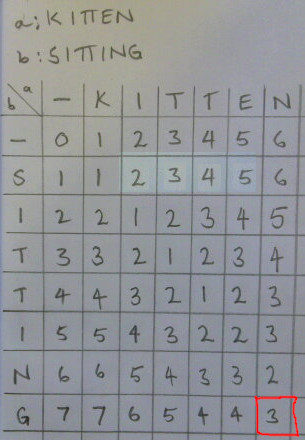 a: KITTEN
b: SITTING
b \ a — K I T T E N
— 0 1 2 3 4 5 6
S 1 1 2 3 4 5 6
I 2 2 1 2 3 4 5
T 3 3 2 1 2 3 4
T 4 4 3 2 1 2 3
I 5 5 4 3 2 2 3
N 6 6 5 4 3 3 2
G 7 7 6 5 4 4 3